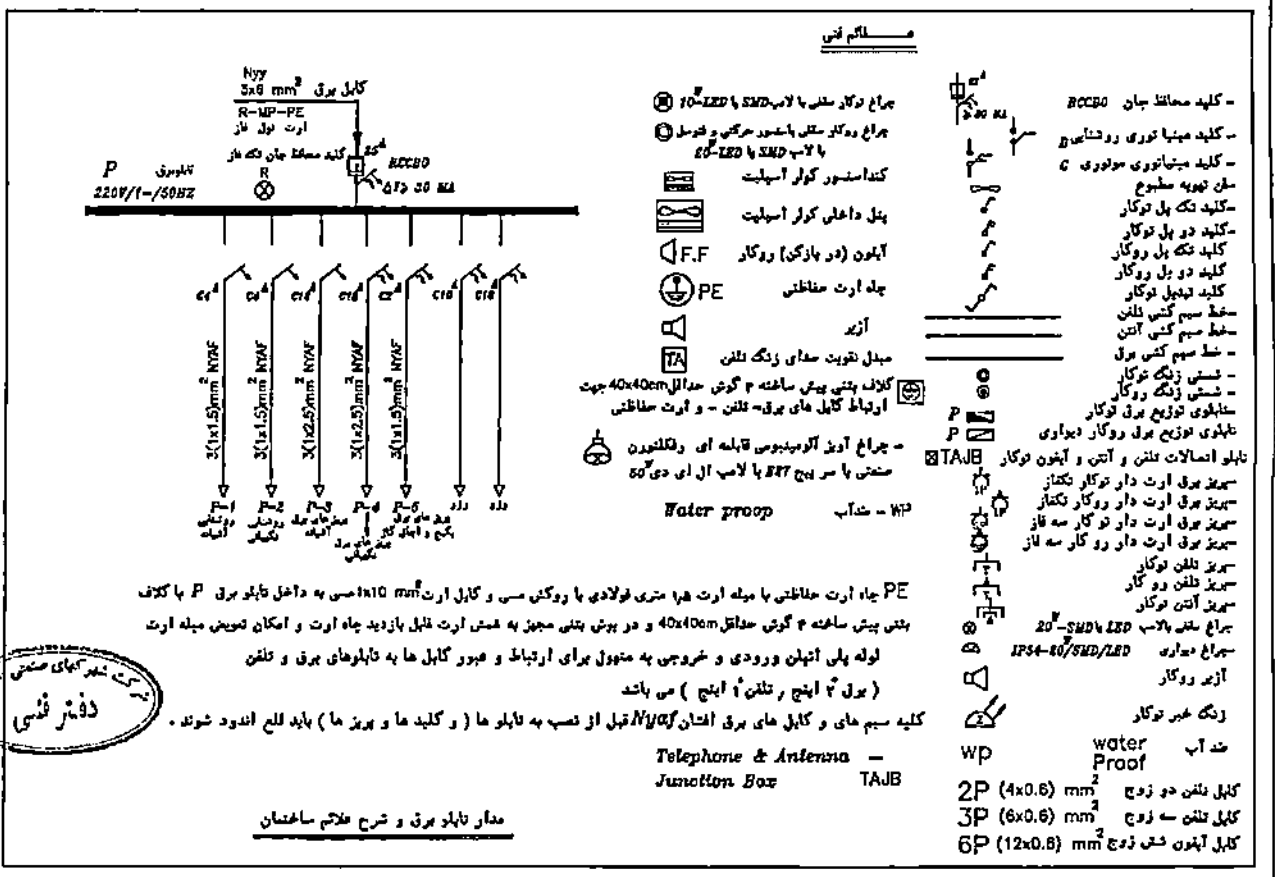 علائم فنی
Nyy
3x6 mm² کابل برق
R-MP-PE
ارت نول فاز
کلید محافظ جان تک فاز
25A
RCCBO
ΔI≥ 30 MA
تابلوبرق P
220V/1~/50HZ
R
C16 C16
3(1x1.5)mm² NYAF
3(1x1.5)mm² NYAF
3(1x2.5)mm² NYAF
3(1x2.5)mm² NYAF
3(1x1.5)mm² NYAF
P-1 P-2 P-3 P-4 P-5 رزرو رزرو
روشنایی
روشنایی نگهبانی
پریزهای برق
پریزهای برق نگهبانی
پریزهای برق پکیج و اجاق گاز
چراغ توکار سقفی با لامپ SMD یا LED-10W
چراغ روکار سقفی باسنسور حرکتی و فتوسل
با لامپ SMD یا LED-20W
کندانسور کولر اسپلیت
پنل داخلی کولر اسپلیت
آیفون (در بازکن) روکار F.F
چاه ارت حفاظتی PE
آژیر
مبدل تقویت صدای زنگ تلفن TA
کلاف بتنی پیش ساخته ۴ گوش حداقل 40x40cm جهت
ارتباط کابل های برق- تلفن - و ارت حفاظتی
- چراغ آویز آلومینیومی قابلمه ای رفلکتورن
صنعتی با سر پیچ E27 با لامپ ال ای دی 50W
WP - ضدآب Water proop
- کلید محافظ جان RCCBO
≥30 MA
- کلید مینیا توری روشنایی B
- کلید مینیاتوری موتوری C
-فن تهویه مطبوع
-کلید تک پل توکار
-کلید دو پل توکار
کلید تک پل روکار
کلید دو پل روکار
کلید تبدیل توکار
-خط سیم کشی تلفن
-خط سیم کشی آنتن
- خط سیم کشی برق
- شستی زنگ توکار
- شستی زنگ روکار
-تابلوی توزیع برق توکار P
تابلوی توزیع برق روکار دیواری P
تابلو اتصالات تلفن و آنتن و آیفون توکار TAJB
-پریز برق ارت دار توکار تکفاز
-پریز برق ارت دار روکار تکفاز
-پریز برق ارت دار تو کار سه فاز
-پریز برق ارت دار رو کار سه فاز
-پریز تلفن توکار
-پریز تلفن رو کار
-پریز آنتن توکار
چراغ سقفی بالامپ LED یا SMD-20W
-چراغ دیواری IP54-20W/SMD/LED
آژیر روکار
زنگ خبر توکار
ضد آب water Proof wp
کابل تلفن دو زوج 2P (4x0.6) mm²
کابل تلفن سه زوج 3P (6x0.6) mm²
کابل آیفون شش زوج 6P (12x0.6) mm²
PE چاه ارت حفاظتی با میله ارت متری فولادی با روکش مسی و کابل ارت 1x10 mm² مسی به داخل تابلو برق P با کلاف
بتنی پیش ساخته ۴ گوش حداقل 40x40cm و در پوش بتنی مجهز به شمش ارت قابل بازدید چاه ارت و امکان تعویض میله ارت
لوله پلی اتیلن ورودی و خروجی به منهول برای ارتباط و عبور کابل ها به تابلوهای برق و تلفن
( برق ۲ اینچ ر تلفن ۱ اینچ ) می باشد
کلیه سیم های و کابل های برق افشان Nyaf قبل از نصب به تابلو ها ( و کلید ها و پریز ها ) باید قلع اندود شوند .
Telephone & Antenna –
Junction Box TAJB
مدار تابلو برق و شرح علائم ساختمان
شرکت شهرکهای صنعتی
دفتر فنی